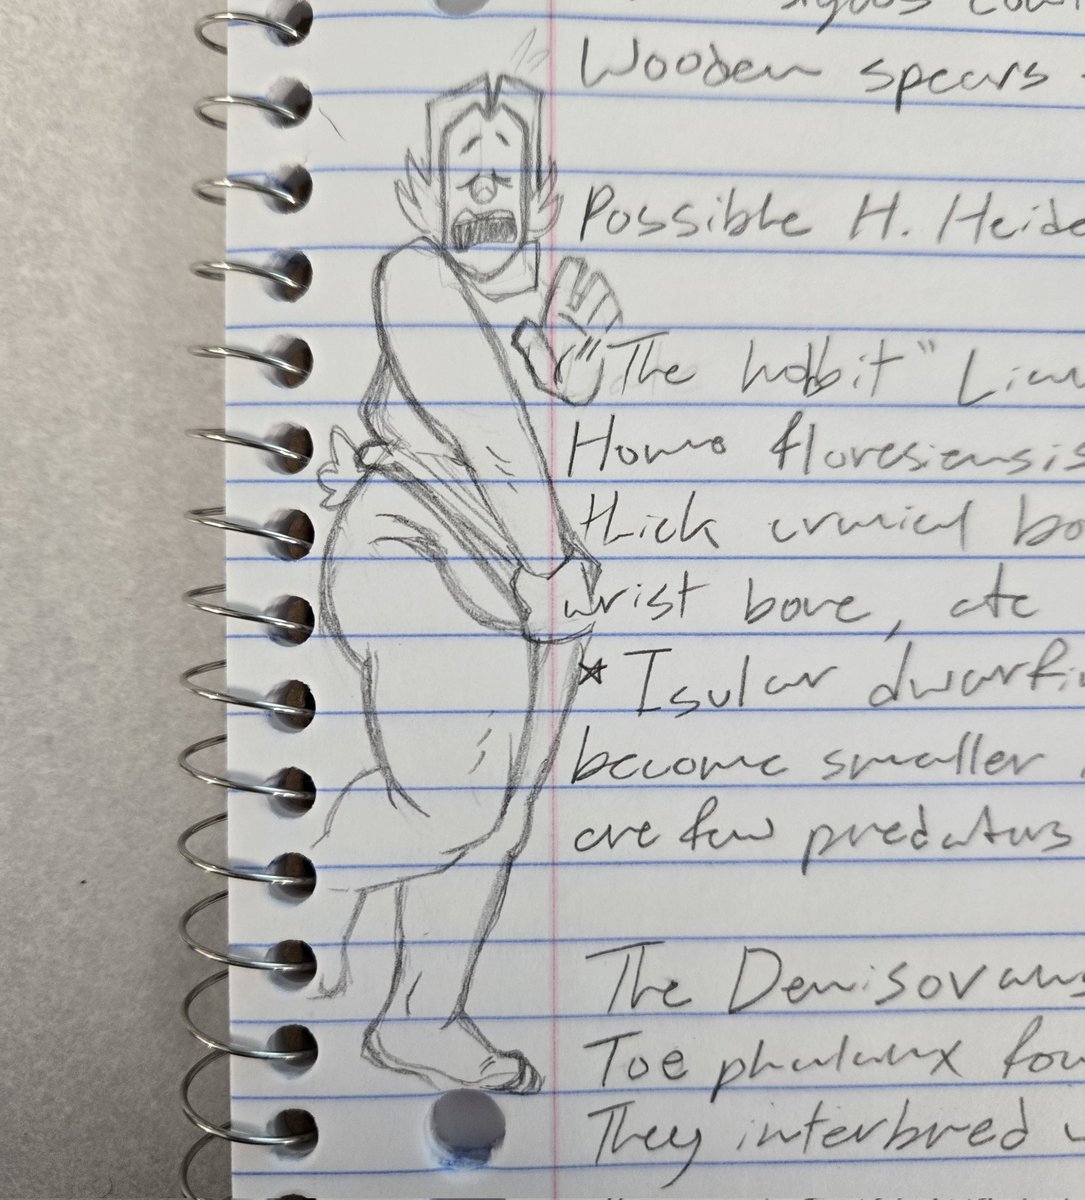 Wooden spears
Possible H. Heide
"The hobbit"
Homo floresiensis
thick cranical bo
wrist bone, etc
* Isular dwarfi
become smaller
are few predators
The Denisovans
Toe phalanx fou
They interbred